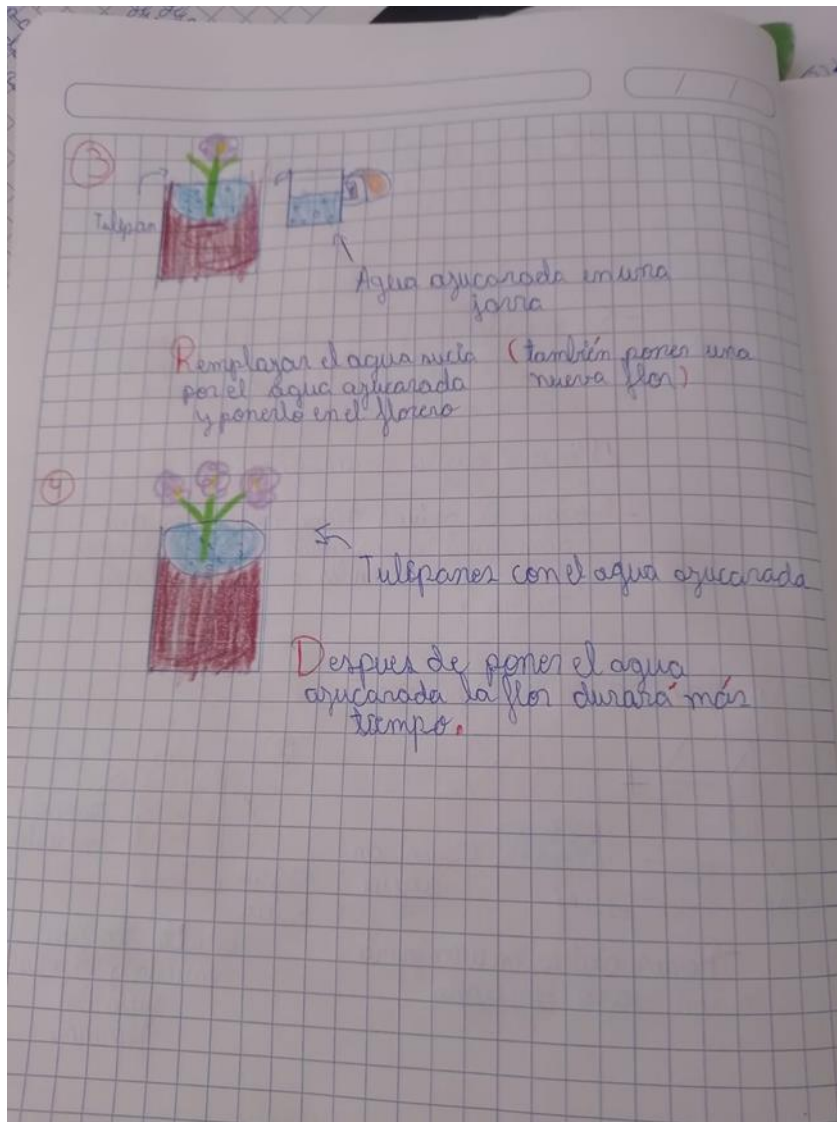 3
Tulipan
Agua azucarada en una
jarra
Remplazar el agua sucia
por el agua azucarada
y ponerlo en el florero
(también poner una
nueva flor)
4
Tulipanes con el agua azucarada
Despues de poner el agua
azucarada la flor durará más
tiempo.